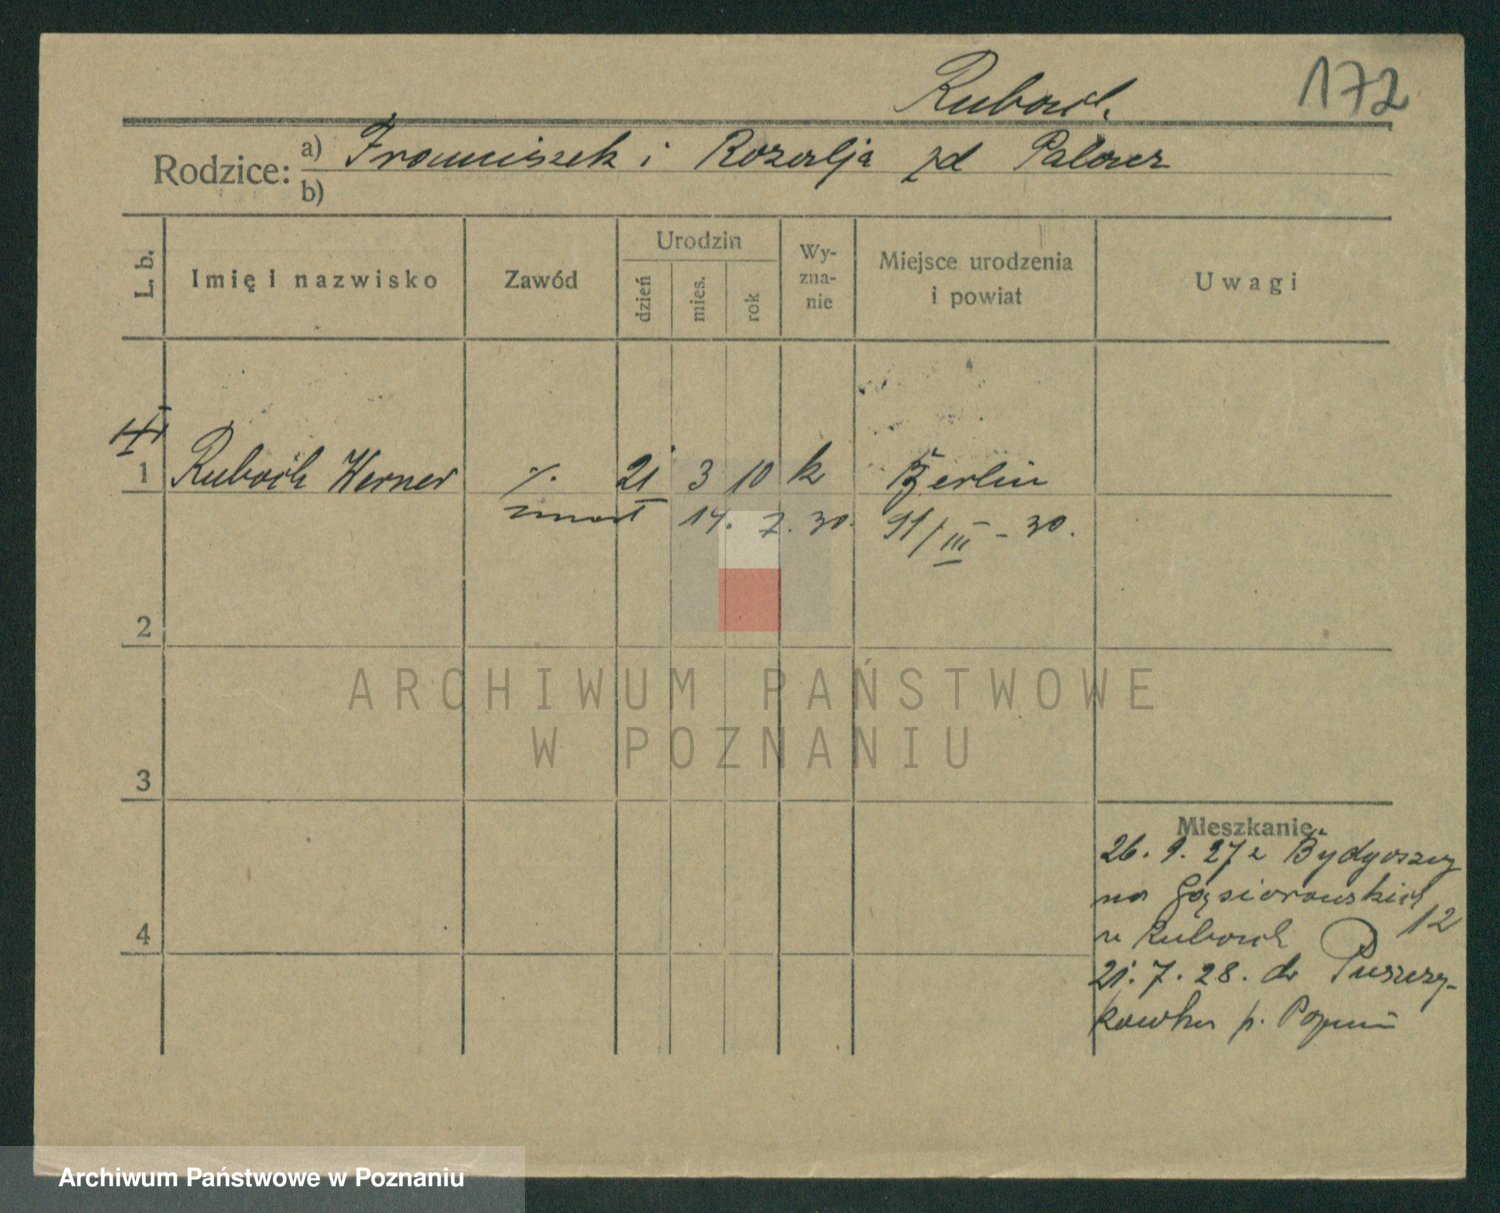 172
Rodzice:
a) Franciszek i Rozalja zd
b)
L. b.
Imię i nazwisko
Zawód
Urodzin
dzień
mies.
rok
Wy-
zna-
nie
Miejsce urodzenia
i powiat
Uwagi
1 Werner 21 3 10 k Berlin
zmarł 14. 2. 30. 91/III - 30.
2
ARCHIWUM PAŃSTWOWE
W POZNANIU
3
4
Mieszkanie.
26. 9. 27 z Bydgoszczy
na Gąsiorowskich
12
u
21. 7. 28. do Puszczy-
kowka p. Pozn
Archiwum Państwowe w Poznaniu